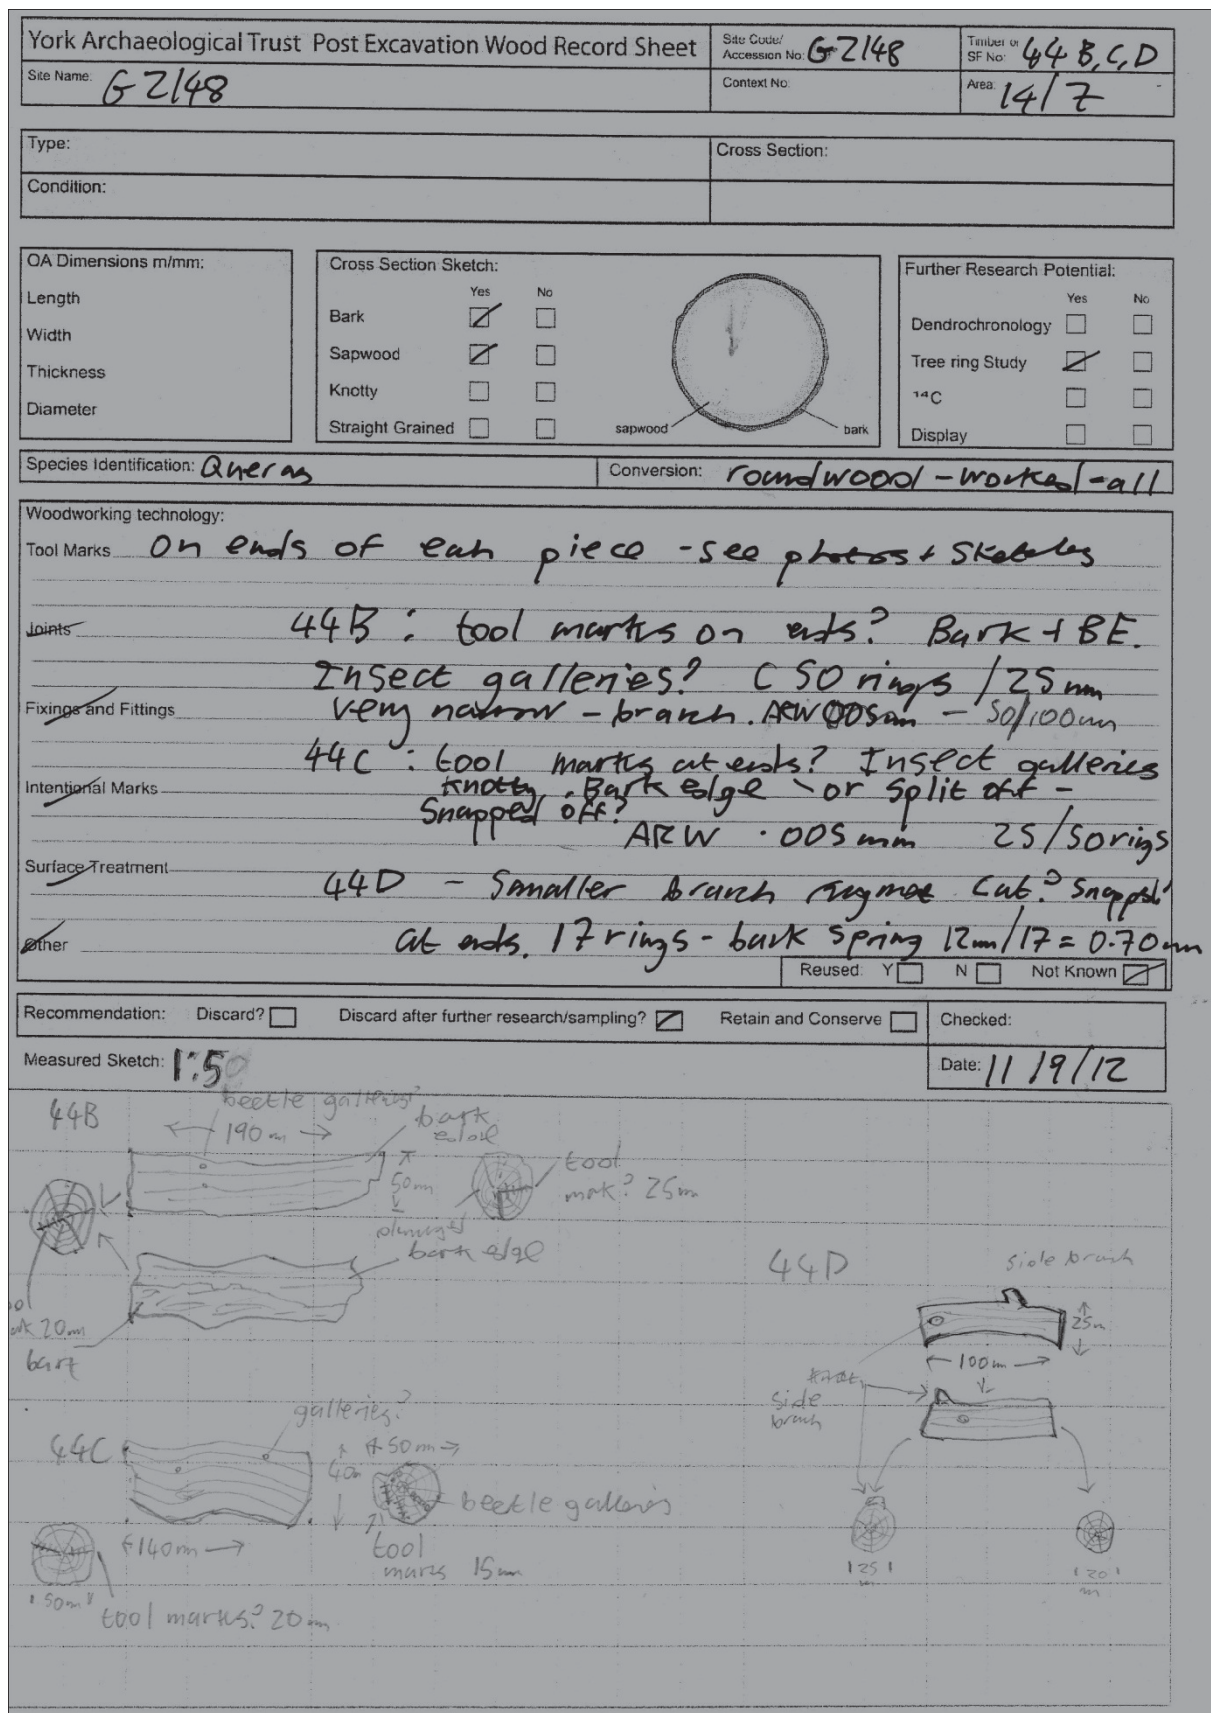 York Archaeological Trust Post Excavation Wood Record Sheet
Site Code/ Accession No: GZ/48
Timber or SF No: 44 B, C, D
Site Name: GZ/48
Context No:
Area: 14/7
Type:
Cross Section:
Condition:
OA Dimensions m/mm:
Length
Width
Thickness
Diameter
Cross Section Sketch:
Yes No
Bark
Sapwood
Knotty
Straight Grained
sapwood
bark
Further Research Potential:
Yes No
Dendrochronology
Tree ring Study
¹⁴C
Display
Species Identification: Quercus
Conversion: roundwood - worked - all
Woodworking technology:
Tool Marks On ends of each piece - see photos + Sketches
Joints 44B : tool marks on ends? Bark + BE.
Insect galleries? C 50 rings / 25mm
Fixings and Fittings Very narrow - branch. ARW 005mm - 50/100mm
44C : tool marks at ends? Insect galleries
Intentional Marks Knotty. Bark edge - or split off -
Snapped off?
ARW .005mm 25/50 rings
Surface Treatment 44D - Smaller branch Cut? Snapped?
Other at ends. 17 rings - bark spring 12mm/17 = 0.70mm
Reused: Y N Not Known
Recommendation: Discard? Discard after further research/sampling? Retain and Conserve
Checked:
Measured Sketch: 1:50
Date: 11/9/12
44B
beetle galleries?
190mm
bark edge
50mm
tool mark? 25mm
damaged bark edge
20mm
bark
44D
side branch
25mm
100mm
side branch
galleries?
44C
50mm
40m
beetle galleries
140mm
tool marks 15mm
50mm
tool marks? 20mm
25
m
20
m